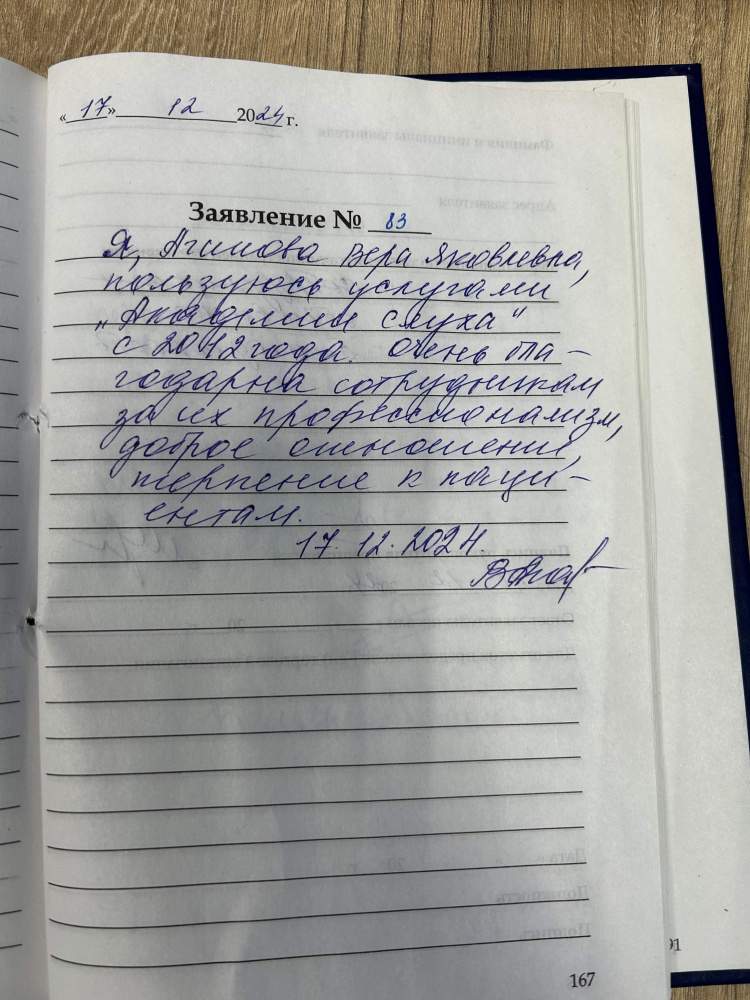 «17» 12 2024 г.
Заявление № 83
Я, Агипова Вера Яковлевна,
пользуюсь услугами
"Академии слуха"
с 2012 года. Очень бла-
годарна сотрудникам
за их профессионализм,
доброе отношение,
терпение к паци-
ентам.
17.12.2024.
167
91